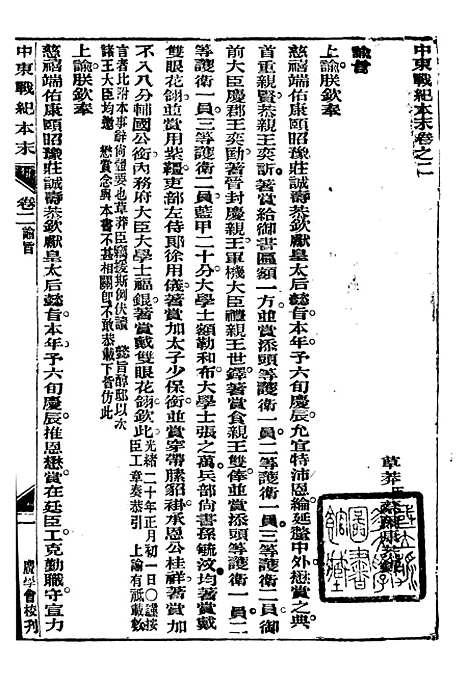 中東戰紀本末卷之二
諭旨
上諭朕欽奉
慈禧端佑康頤昭豫莊誠壽恭欽獻皇太后懿旨本年予六旬慶辰允宜特沛恩綸延釐中外懋賞之典
首重親賢恭親王奕訢著賞給御書匾額一方並賞添頭等護衛一員二等護衛一員三等護衛二員御
前大臣慶郡王奕劻著晉封慶親王軍機大臣禮親王世鐸著賞食親王雙俸並賞添頭等護衛一員二
等護衛一員三等護衛二員藍甲二十分大學士額勒和布大學士張之萬兵部尚書孫毓汶均著賞戴
雙眼花翎並賞用紫韁吏部左侍郎徐用儀著賞加太子少保銜並賞穿帶膆貂褂承恩公桂祥著賞加
不入八分輔國公銜內務府大臣大學士福錕著賞戴雙眼花翎欽此
光緒二十年正月初一日○謹按
臣工章奏恭引 上諭有祗載數
言者比附本事辭尚體要也草莽臣竊援斯例伏讀 懿旨醇邸以次
諸王大臣均邀 懋賞念與本書不甚相關即不敢恭載下皆仿此
上諭朕欽奉
慈禧端佑康頤昭豫莊誠壽恭欽獻皇太后懿旨本年予六旬慶辰推恩懋賞在廷臣工克勤職守宣力
中東戰紀本末
卷二 諭旨
一
廣學會校刊